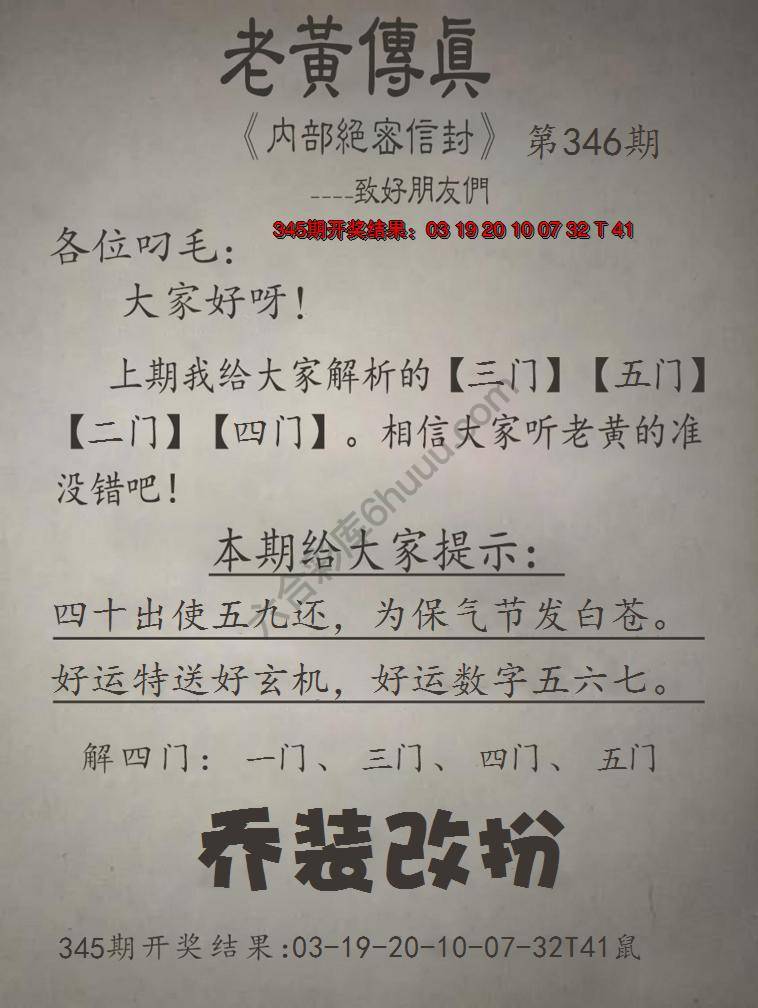 老黃傳眞
《内部絕密信封》 第346期
----致好朋友們
345期开奖结果：03 19 20 10 07 32 T 41
各位叼毛：
大家好呀！
上期我给大家解析的【三门】【五门】
【二门】【四门】。相信大家听老黄的准
没错吧！
本期给大家提示：
四十出使五九还，为保气节发白苍。
好运特送好玄机，好运数字五六七。
解四门：一门、三门、四门、五门
乔装改扮
345期开奖结果:03-19-20-10-07-32T41鼠
六合彩库6huuu.com